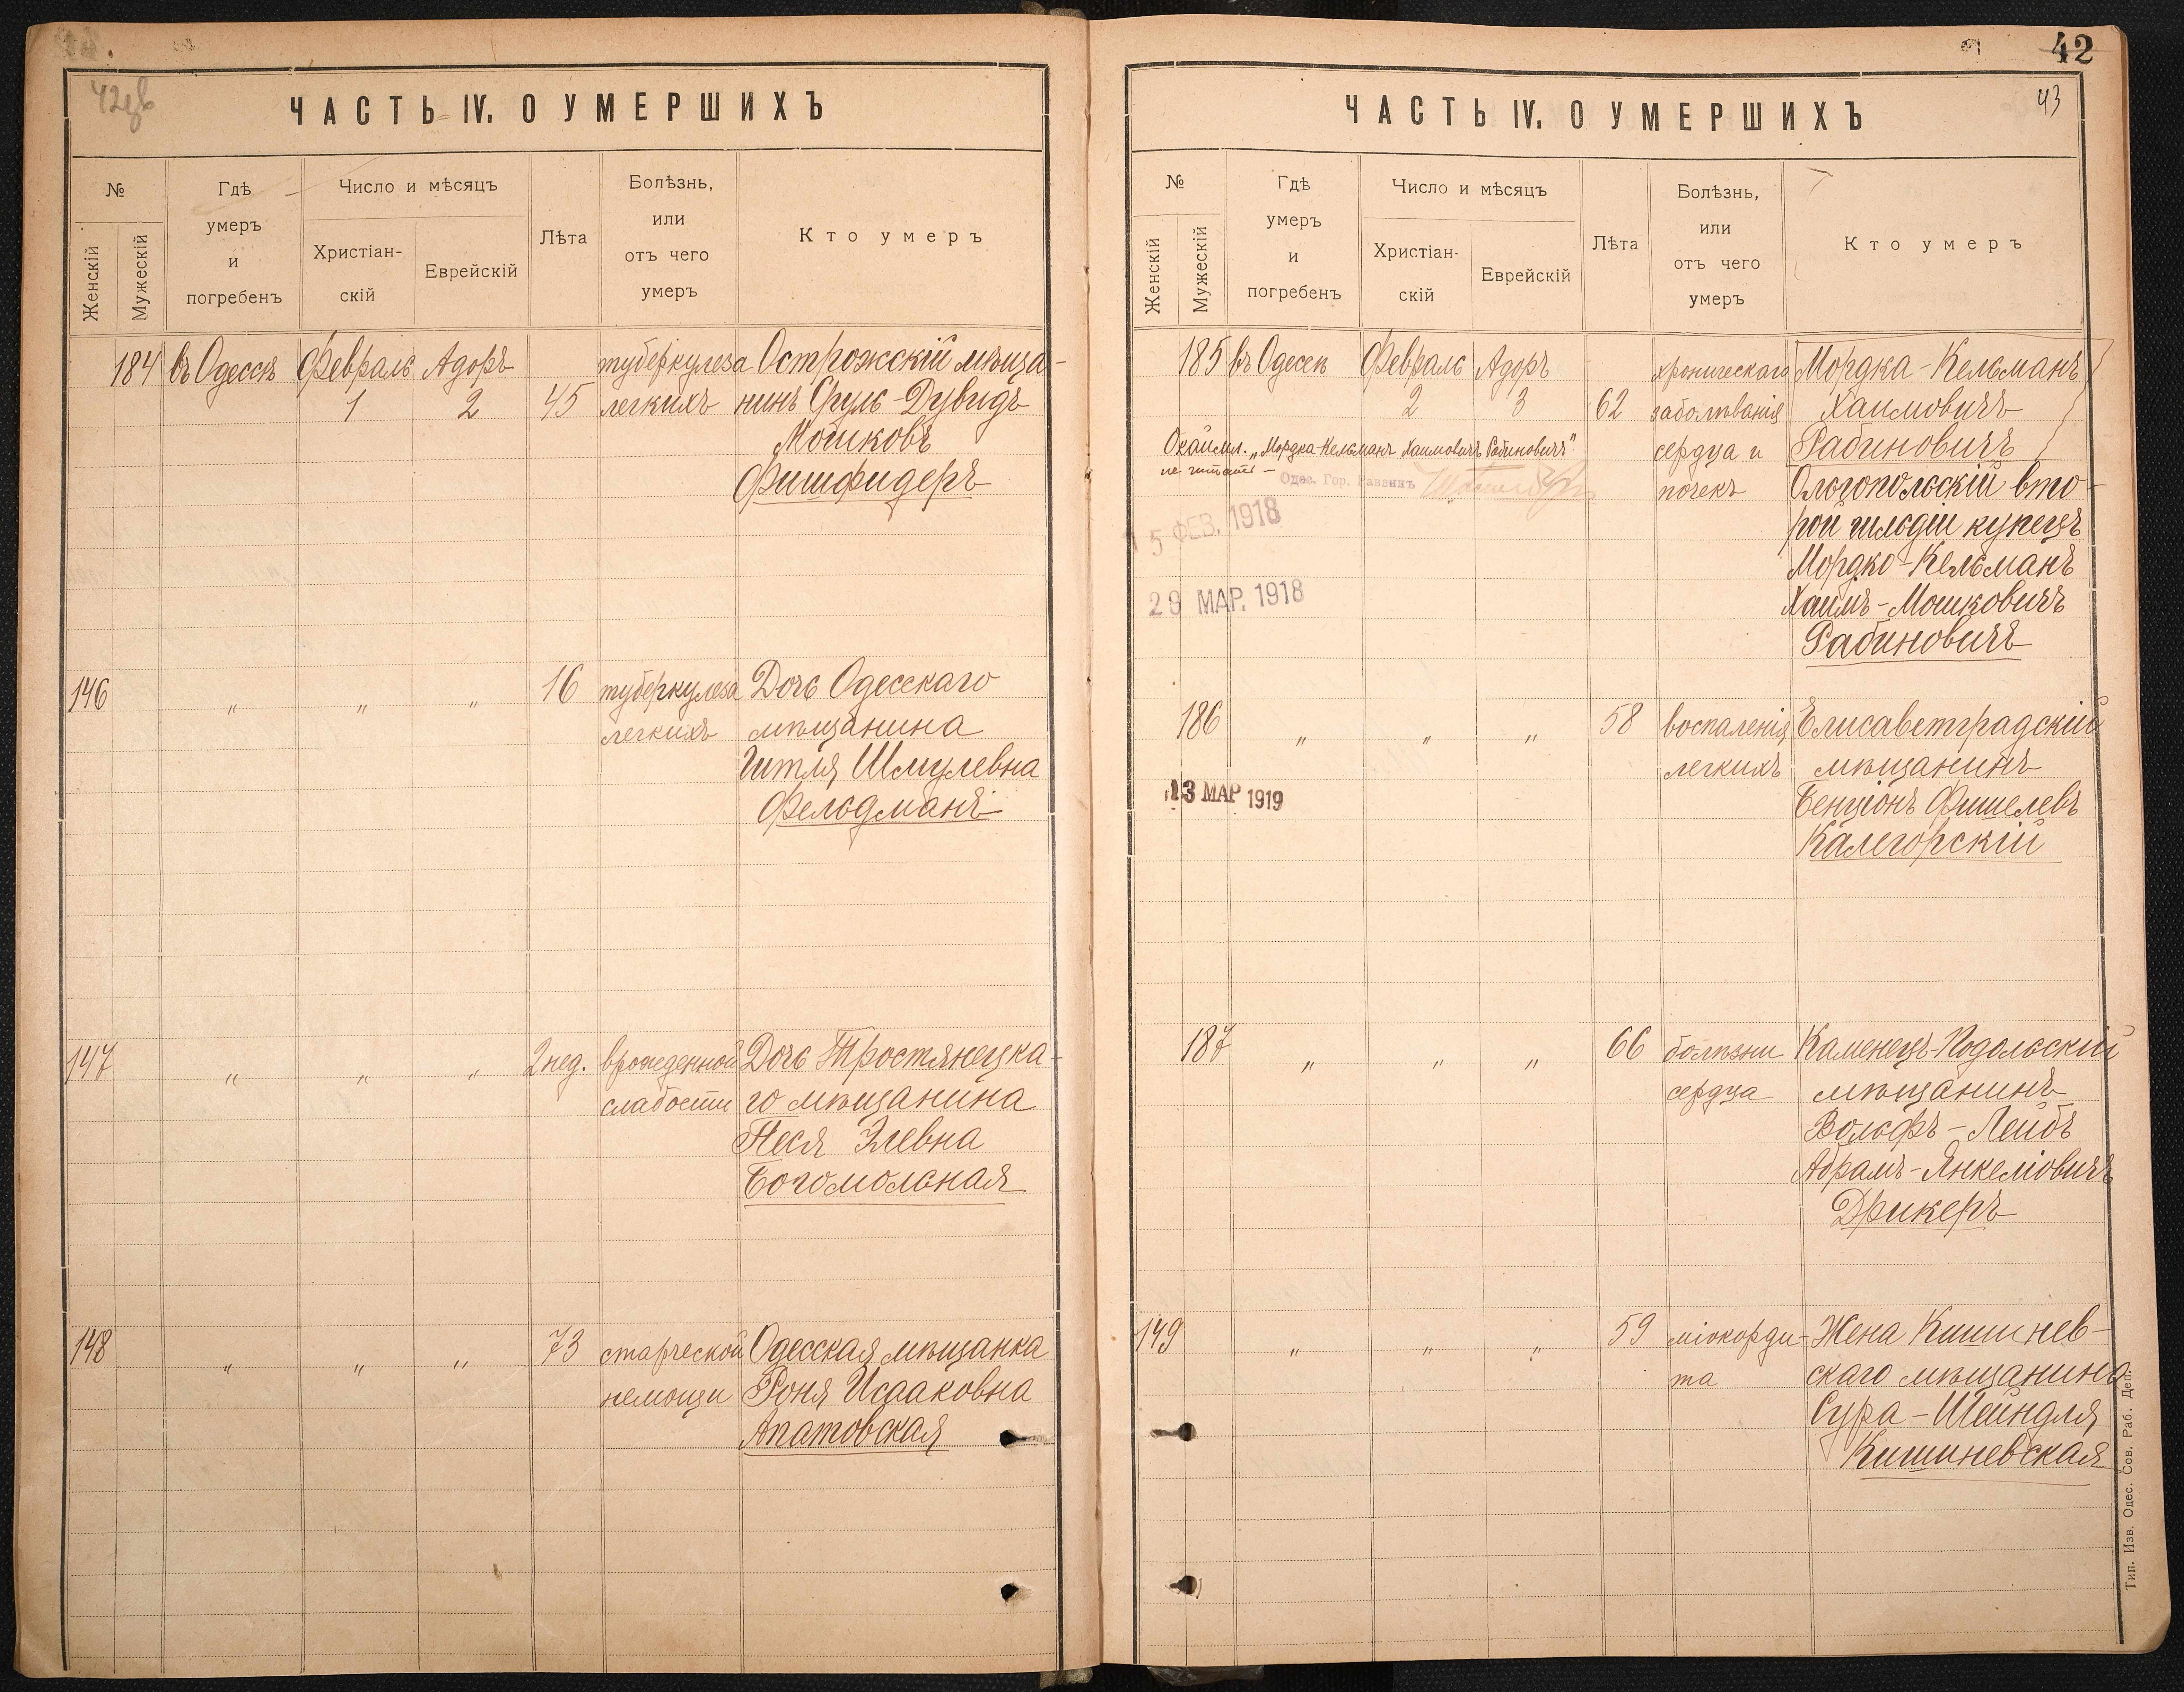 42
ЧАСТЬ IV. О УМЕРШИХЪ
№
Женскій
Мужескій
Гдѣ
умеръ
и
погребенъ
Число и мѣсяцъ
Христіан-
скій
Еврейскій
Лѣта
Болѣзнь,
или
отъ чего
умеръ
Кто умеръ
184 въ Одессѣ Февраль Адоръ туберкулеза Острожскій мѣща-
1 2 45 легкихъ нинъ Сруль-Дувидъ
Мошковъ
Фишфидеръ
146 " " " 16 туберкулеза Дочь Одесскаго
легкихъ мѣщанина
Гитля Шмулевна
Фельдманъ
147 " " " 2 нед. врожденной Дочь Тростянецка-
слабости го мѣщанина
Песя Элевна
Богомольная
148 " " " 73 старческой Одесская мѣщанка
немощи Роня Исааковна
Апатовская
42
43
ЧАСТЬ IV. О УМЕРШИХЪ
№
Женскій
Мужескій
Гдѣ
умеръ
и
погребенъ
Число и мѣсяцъ
Христіан-
скій
Еврейскій
Лѣта
Болѣзнь,
или
отъ чего
умеръ
Кто умеръ
185 въ Одессѣ Февраль Адоръ хроническаго Мордка-Кельманъ
2 3 62 заболѣванія Хаимовичъ
Окаймл. „Мордка-Кельманъ Хаимовичъ Рабиновичъ" сердца и Рабиновичъ
не читать —
Одес. Гор. Раввинъ
почекъ Ольгопольскій вто-
15 ФЕВ. 1918
рой гильдіи купецъ
Мордко-Кельманъ
29 МАР. 1918
Хаимъ-Мошковичъ
Рабиновичъ
186 " " " 58 воспаленія Елисаветградскій
легкихъ мѣщанинъ
13 МАР 1919
Бенціонъ Фишелевъ
Калегорскій
187 " " " 66 болѣзни Каменецъ-Подольскій
сердца мѣщанинъ
Вольфъ-Лейбъ
Абрамъ-Янкеліовичъ
Дрикеръ
149 " " " 59 міокорди- Жена Кишинев-
та скаго мѣщанина
Сура-Шейндля
Кишиневская
Тип. Изв. Одес. Сов. Раб. Деп.